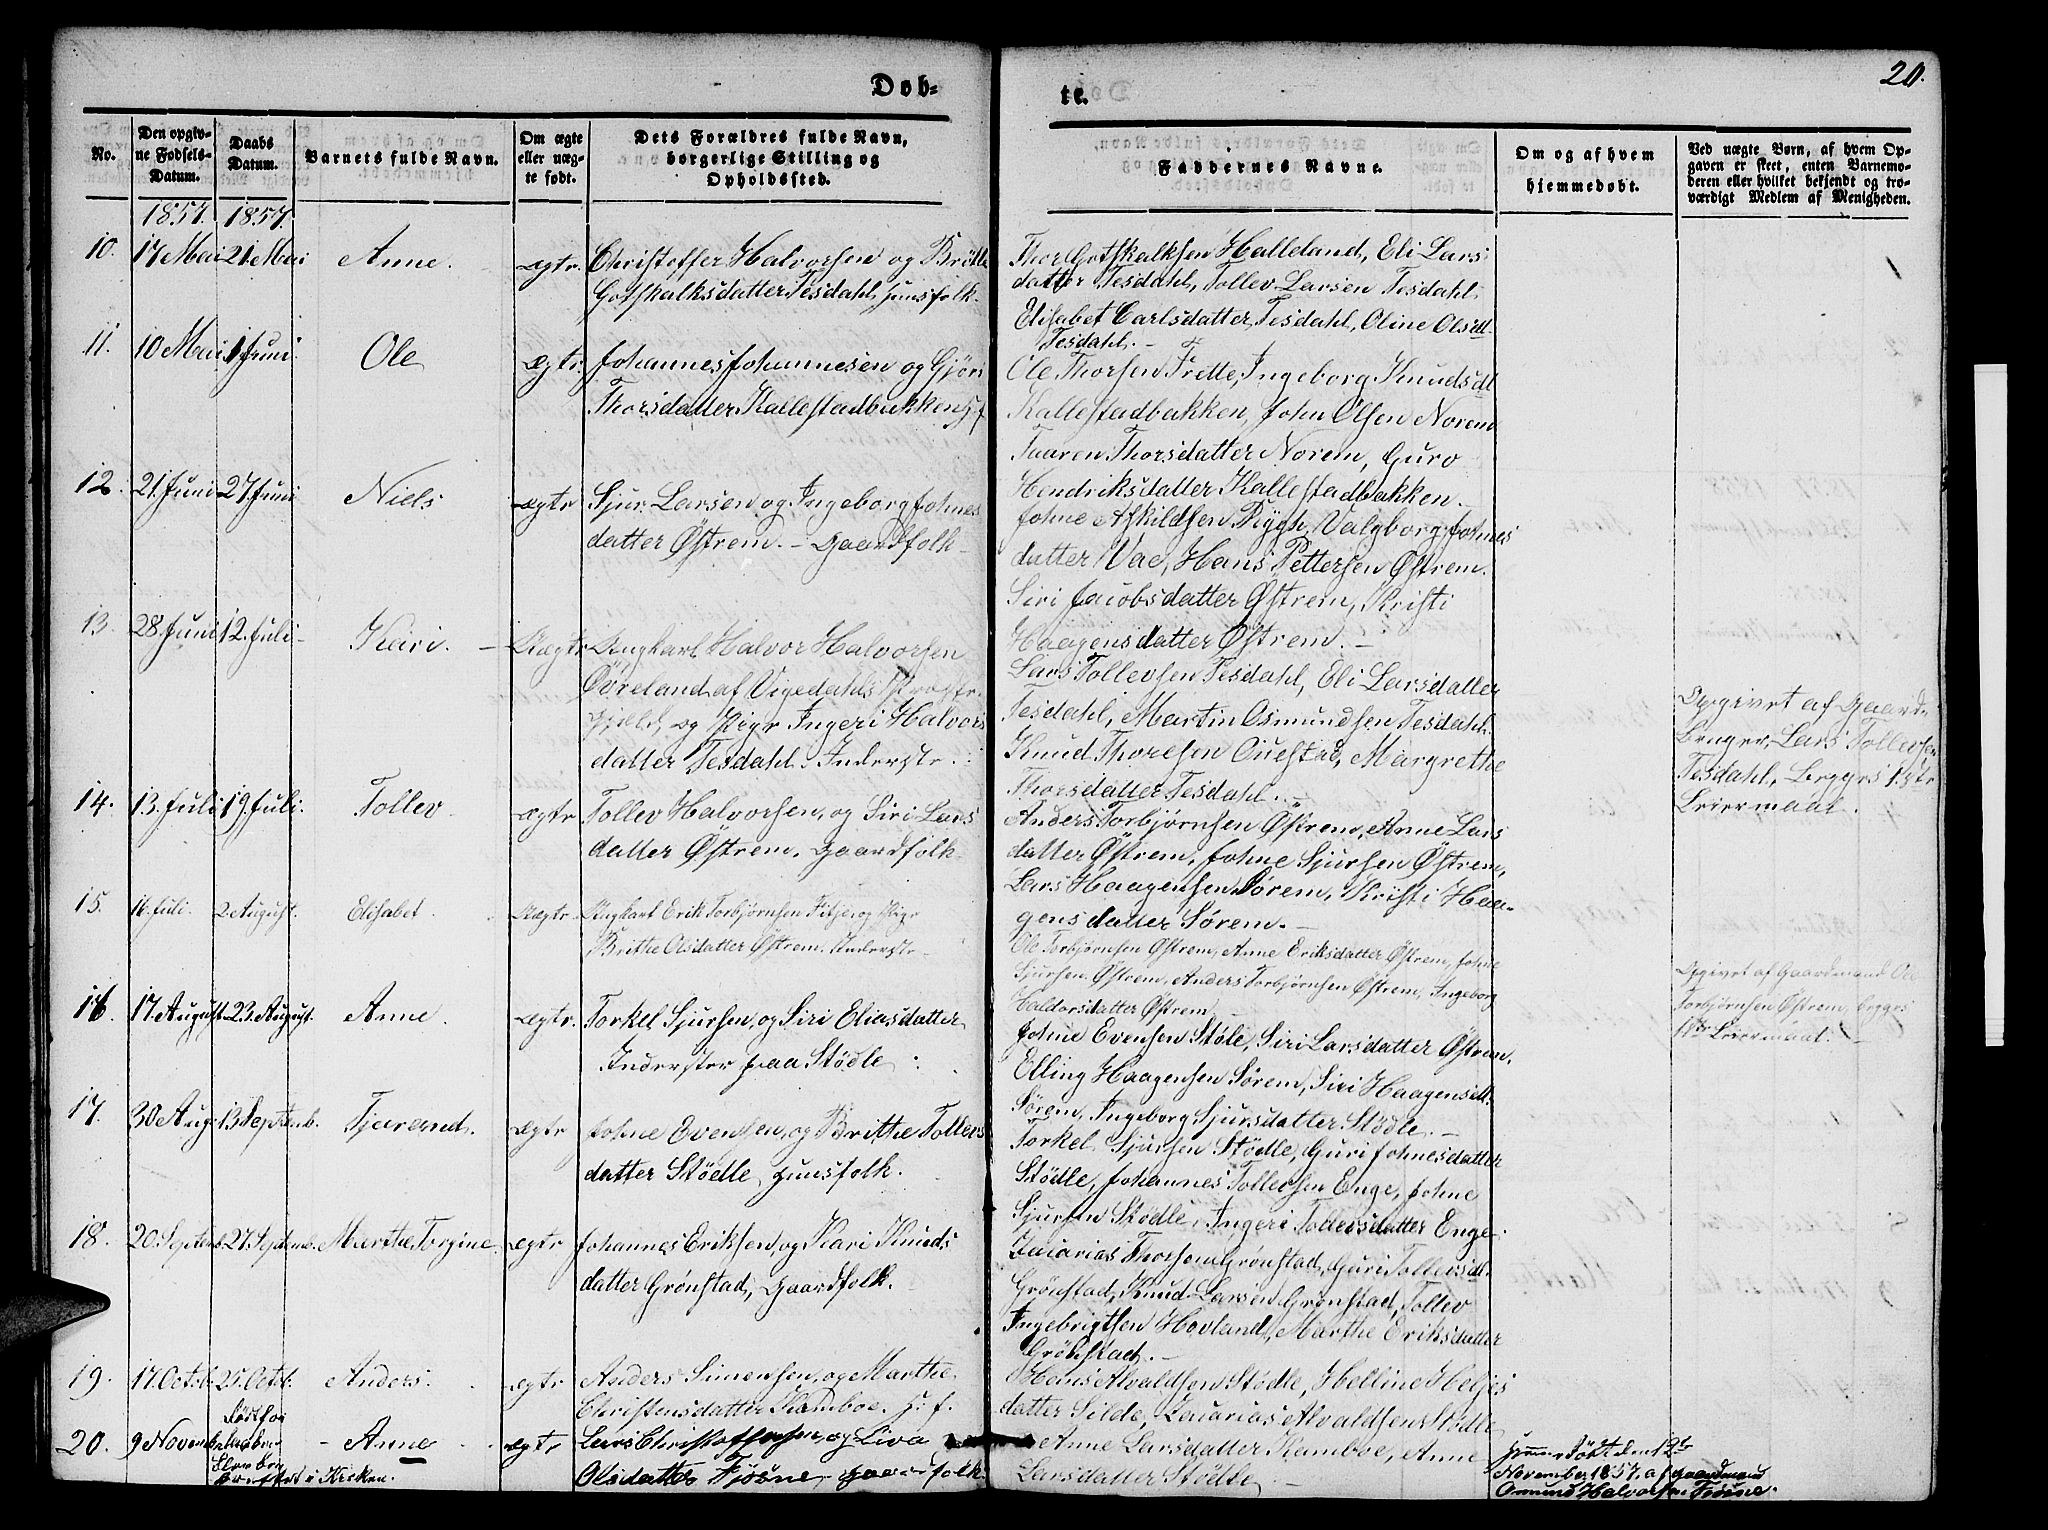 Døb-
te.
20.
No.
Den opgiv-
ne Fødsels-
Datum.
Daabs
Datum.
Barnets fulde Navn.
Om ægte
eller uæg-
te født.
Dets Forældres fulde Navn,
borgerlige Stilling og
Opholdssted.
Faddernes Navne.
Om og af hvem
hjemmedøbt.
Ved uægte Børn, af hvem Op-
gaven er skeet, enten Barnemo-
deren eller hvilket bekjendt og tro-
værdigt Medlem af Menigheden.
1857. 1857.
10. 17 Mai 21 Mai Anne. ægtr. Christoffer Halvorsen og Brithe
Gotskalksdatter Tesdahl, Huusfolk.
Thor Gotskalksen Halleland, Eli Lars
datter Tesdahl, Tollev Larsen Tesdahl,
Elisabet Carlsdatter Tesdahl, Oline Olsdt
Tesdahl.
11. 10 Mai 1 Juni. Ole ægtr. Johannes Johannesen og Gjøri
Thorsdatter Kallestadbakken H. f.
Ole Thorsen Frette, Ingeborg Knudsdt
Kallestadbakken, John Olsen Norem
Taaren Thorsdatter Norem, Guro
Hendriksdatter Kallestadbakken.
12. 21. Juni 27. Juni Niels ægtr Sjur Larsen og Ingeborg Johnes
datter Østrem. - Gaardfolk
Johne Askildsen Rygh, Valgborg Johnes
datter Vae, Hans Pettersen Østrem.
Siri Jacobsdatter Østrem, Kristi
Haagensdatter Østrem. -
13. 28. Juni 12. Juli Kari. - Uægtr Ungkarl Halvor Halvorsen
Øvreland af Vigedahls Præstr.
Gjæld, og Pige Ingeri Halvors
datter Tesdahl. Inderstr.
Lars Tollevsen Tesdahl, Eli Larsdatter
Tesdahl, Martin Osmundsen Tesdahl.
Knud Thoresen Ouestad, Margrethe
Thorsdatter Tesdahl. -
Opgivet af Gaard-
Bruger, Lars Tollevsen
Tesdahl, Begges 1ste
Leiermaal.
14. 13. Juli 19. Juli. Tollev ægtr Tollev Halvorsen, og Siri Lars
datter Østrem. Gaardfolk.
Anders Torbjørnsen Østrem, Anne Lars
datter Østrem, Johne Sjursen Østrem,
Lars Haagensen Sørem, Kristi Haa-
gensdatter Sørem. -
15. 16. Juli. 2 August. Elisabet. Uægtr Ungkarl Erik Torbjørnsen Fitje, og Pige
Brithe Olsdatter Østrem. Inderste
Ole Torbjørnsen Østrem, Anne Eriksdatter Østrem, Johne
Sjursen Østrem, Anders Torbjørnsen Østrem, Ingeborg
Haldorsdatter Østrem
Opgivet af Gaardmand Ole
Torbjørnsen Østrem, begges
1ste Leiermaal.
16. 17 August 23. August. Anne. ægtr. Torkel Sjursen, og Siri Eliasdatter
Inderster paa Stödle.
Johne Evensen Støle, Siri Larsdatter Østrem,
Elling Haagensen Sørem, Siri Haagensdt.
Sørem, Ingeborg Sjursdatter Stødle. -
17. 30 Aug. 13 Septemb. Tjerand. ægtr Johne Evensen, og Brithe Tollevs
datter Stödle, Huusfolk.
Torkel Sjursen Stödle, Guri Johnesdatter
Stödle, Johannes Tollevsen Enge, Johne
Sjursen Stödle, Ingeri Tollevsdatter Enge.
18. 20. Septemb. 27. Septemb. Marthe Torgine. ægtr Johannes Eriksen, og Kari Knuds
datter Grønstad, Gaardfolk.
Zacarias Thorsen Grønstad, Guri Tollevsdt.
Grönstad, Knud Larsen Grønstad, Tollev
Ingebrigtsen Hovland, Marthe Eriksdatter
Grönstad. -
19. 17. Octob. 25. Octb. Anders. ægtr Anders Simensen, og Marthe
Christensdatter Kamboe. H. f.
Hans Alvaldsen Stödle, Helline Heljes
datter Silde, Zacarias Alvaldsen Stödle,
Anne Larsdatter Kamboe, Anne
Larsdatter Stödle. -
20. 9 Novemb. - Anne ægtr. Lars Christoffersen, og Liva
Olsdatter Fjösne, Gaardfolk.
i Kirken.
Hjemmedöbt den 12te
November 1857, af Gaardmand
Omund Halvorsen Fjösne.